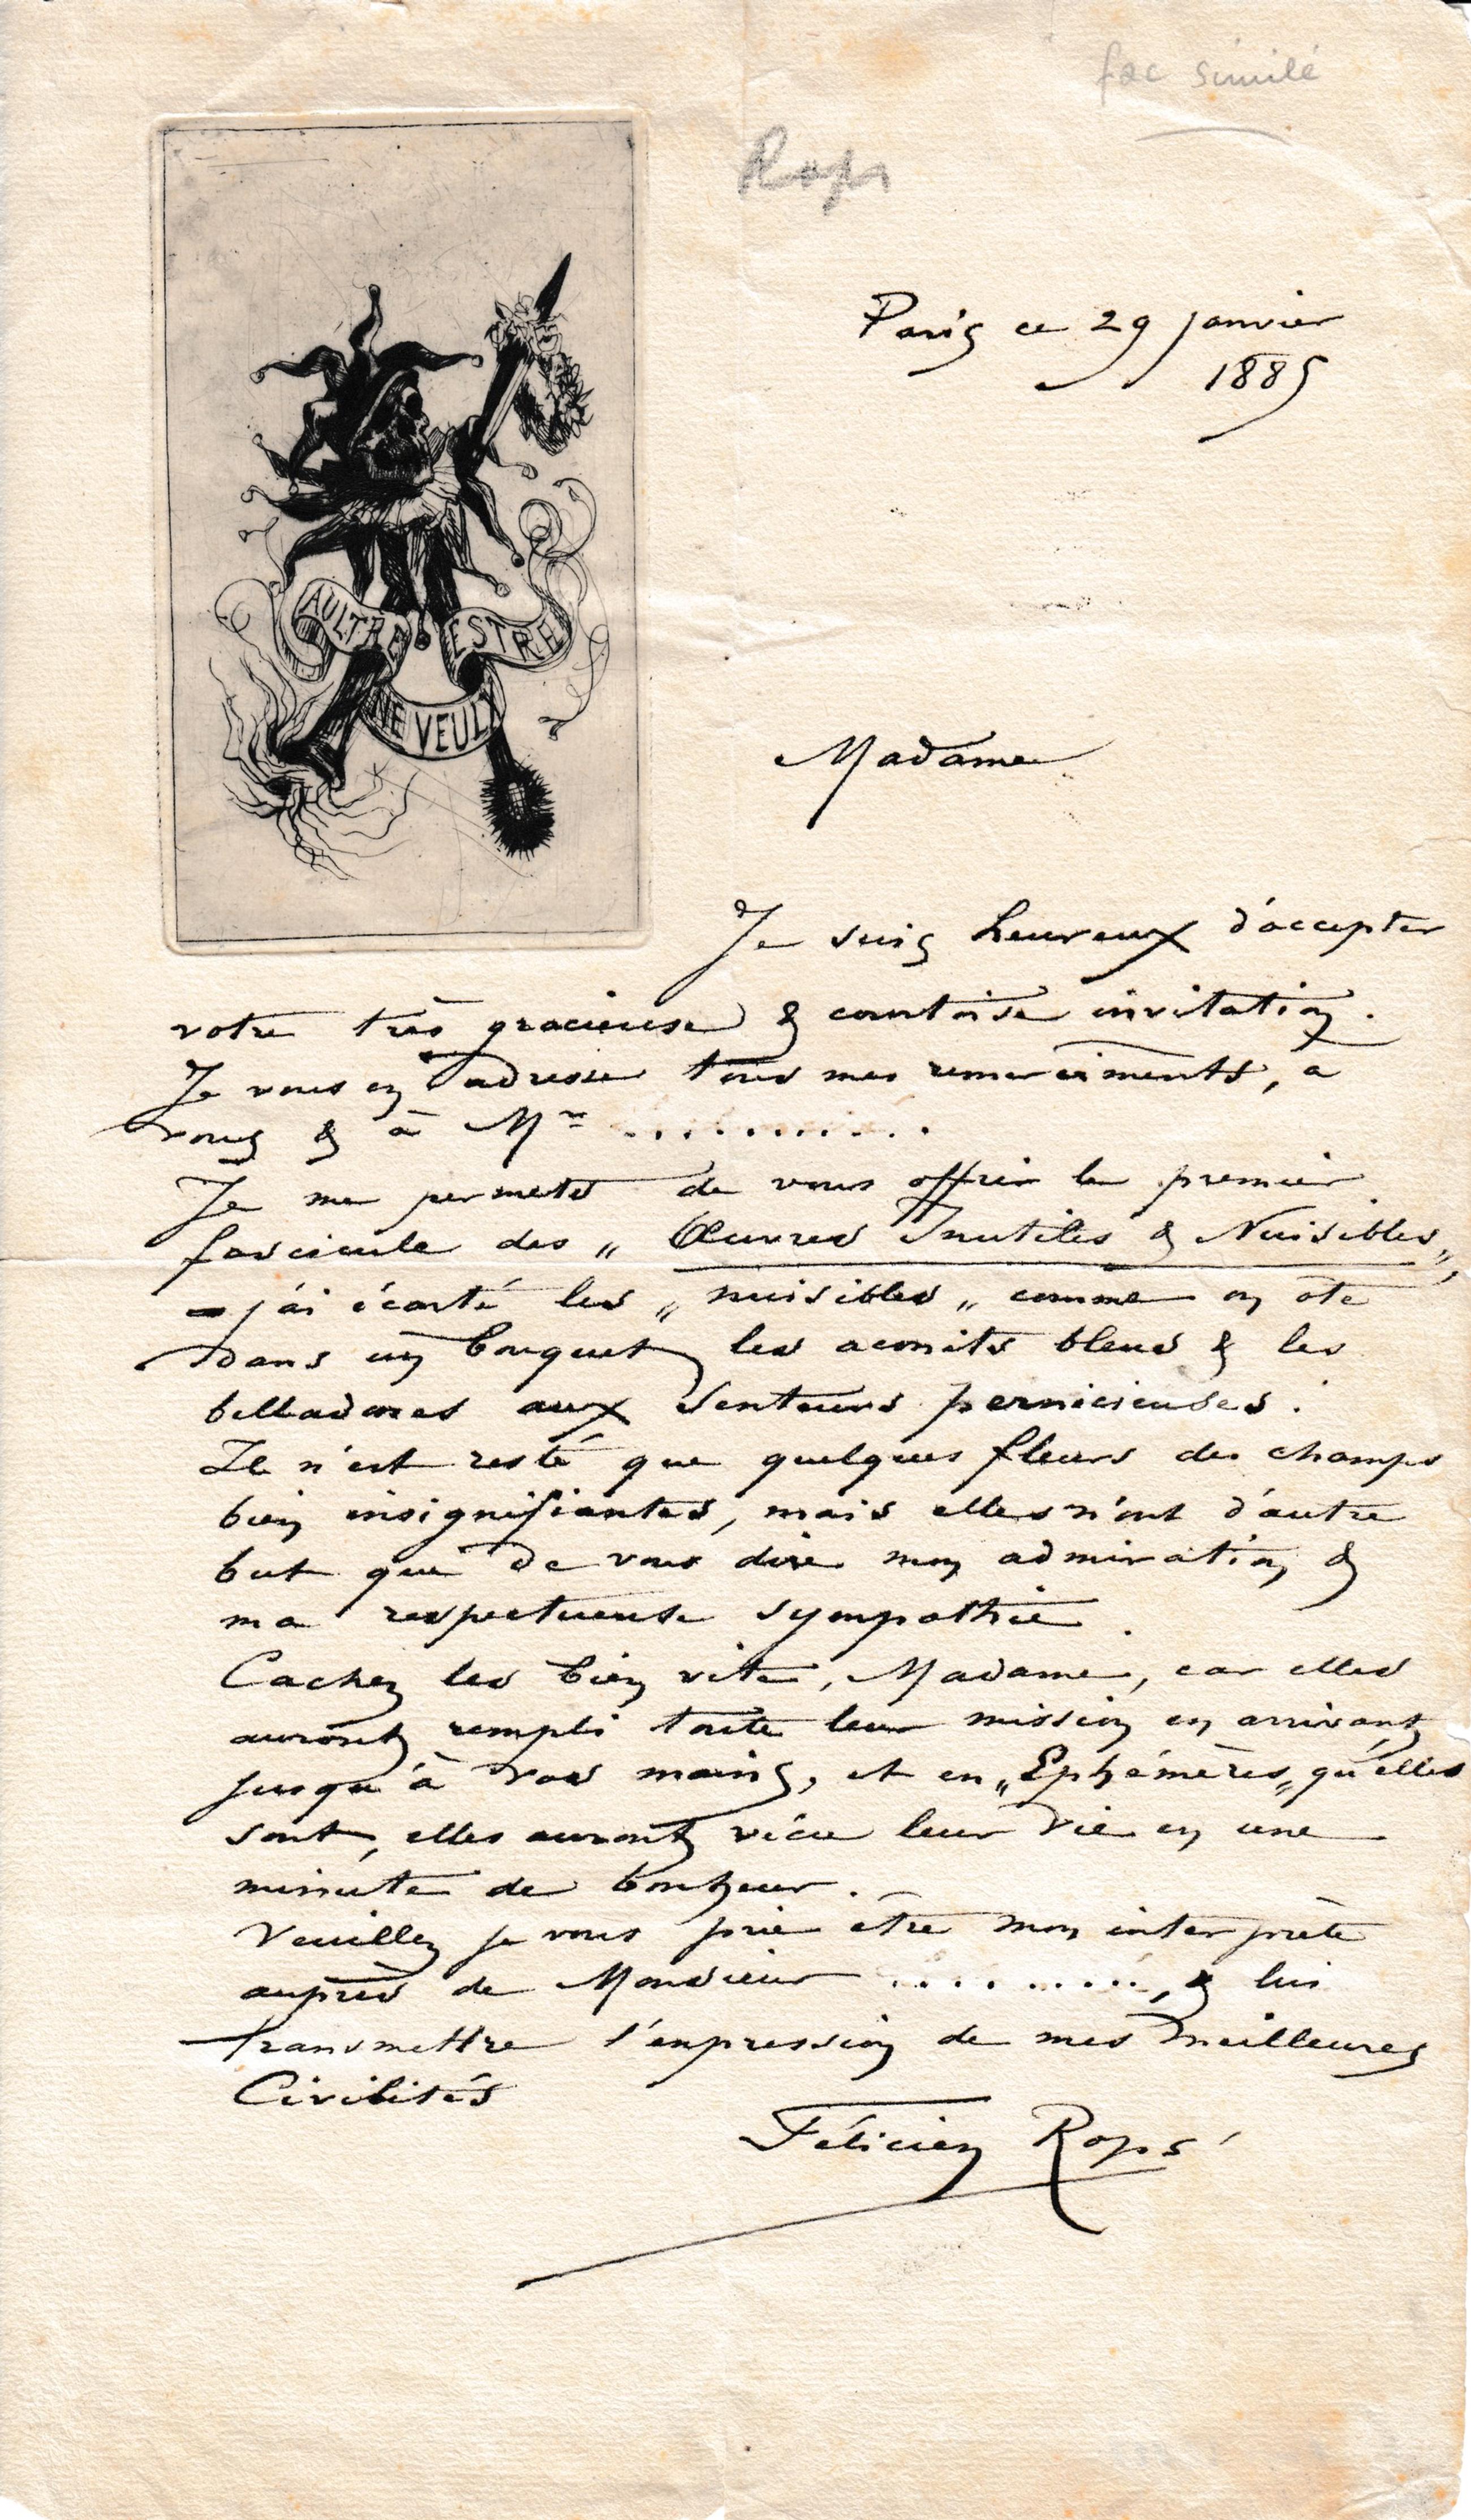 fac similé
Rops
Paris ce 29 janvier
1885
AULTRE
ESTRE
NE VEULX
Madame
Je suis heureux d'accepter
votre très gracieuse & courtoise invitation.
Je vous en adresse tous mes remerciments, a
vous & à Mr ...........
Je me permets de vous offrir le premier
fascicule des „ Œuvres Inutiles & Nuisibles „,
– j'ai écarté les „ nuisibles „ comme on ote
dans un bouquet les aconits bleus & les
belladones aux senteurs pernicieuses.
Il n'est resté que quelques fleurs des champs
bien insignifiantes, mais elles n'ont d'autre
but que de vous dire mon admiration &
ma respectueuse sympathie.
Cachez les bien vite, Madame, car elles
auront rempli toute leur mission en arrivant
jusqu'à vos mains, et en „Ephémères„ qu'elles
sont, elles auront vécu leur vie en une
minute de bonheur.
Veuillez je vous prie être mon interprète
auprès de Monsieur .........., & lui
transmettre l'expression de mes meilleures
Civilités
Félicien Rops